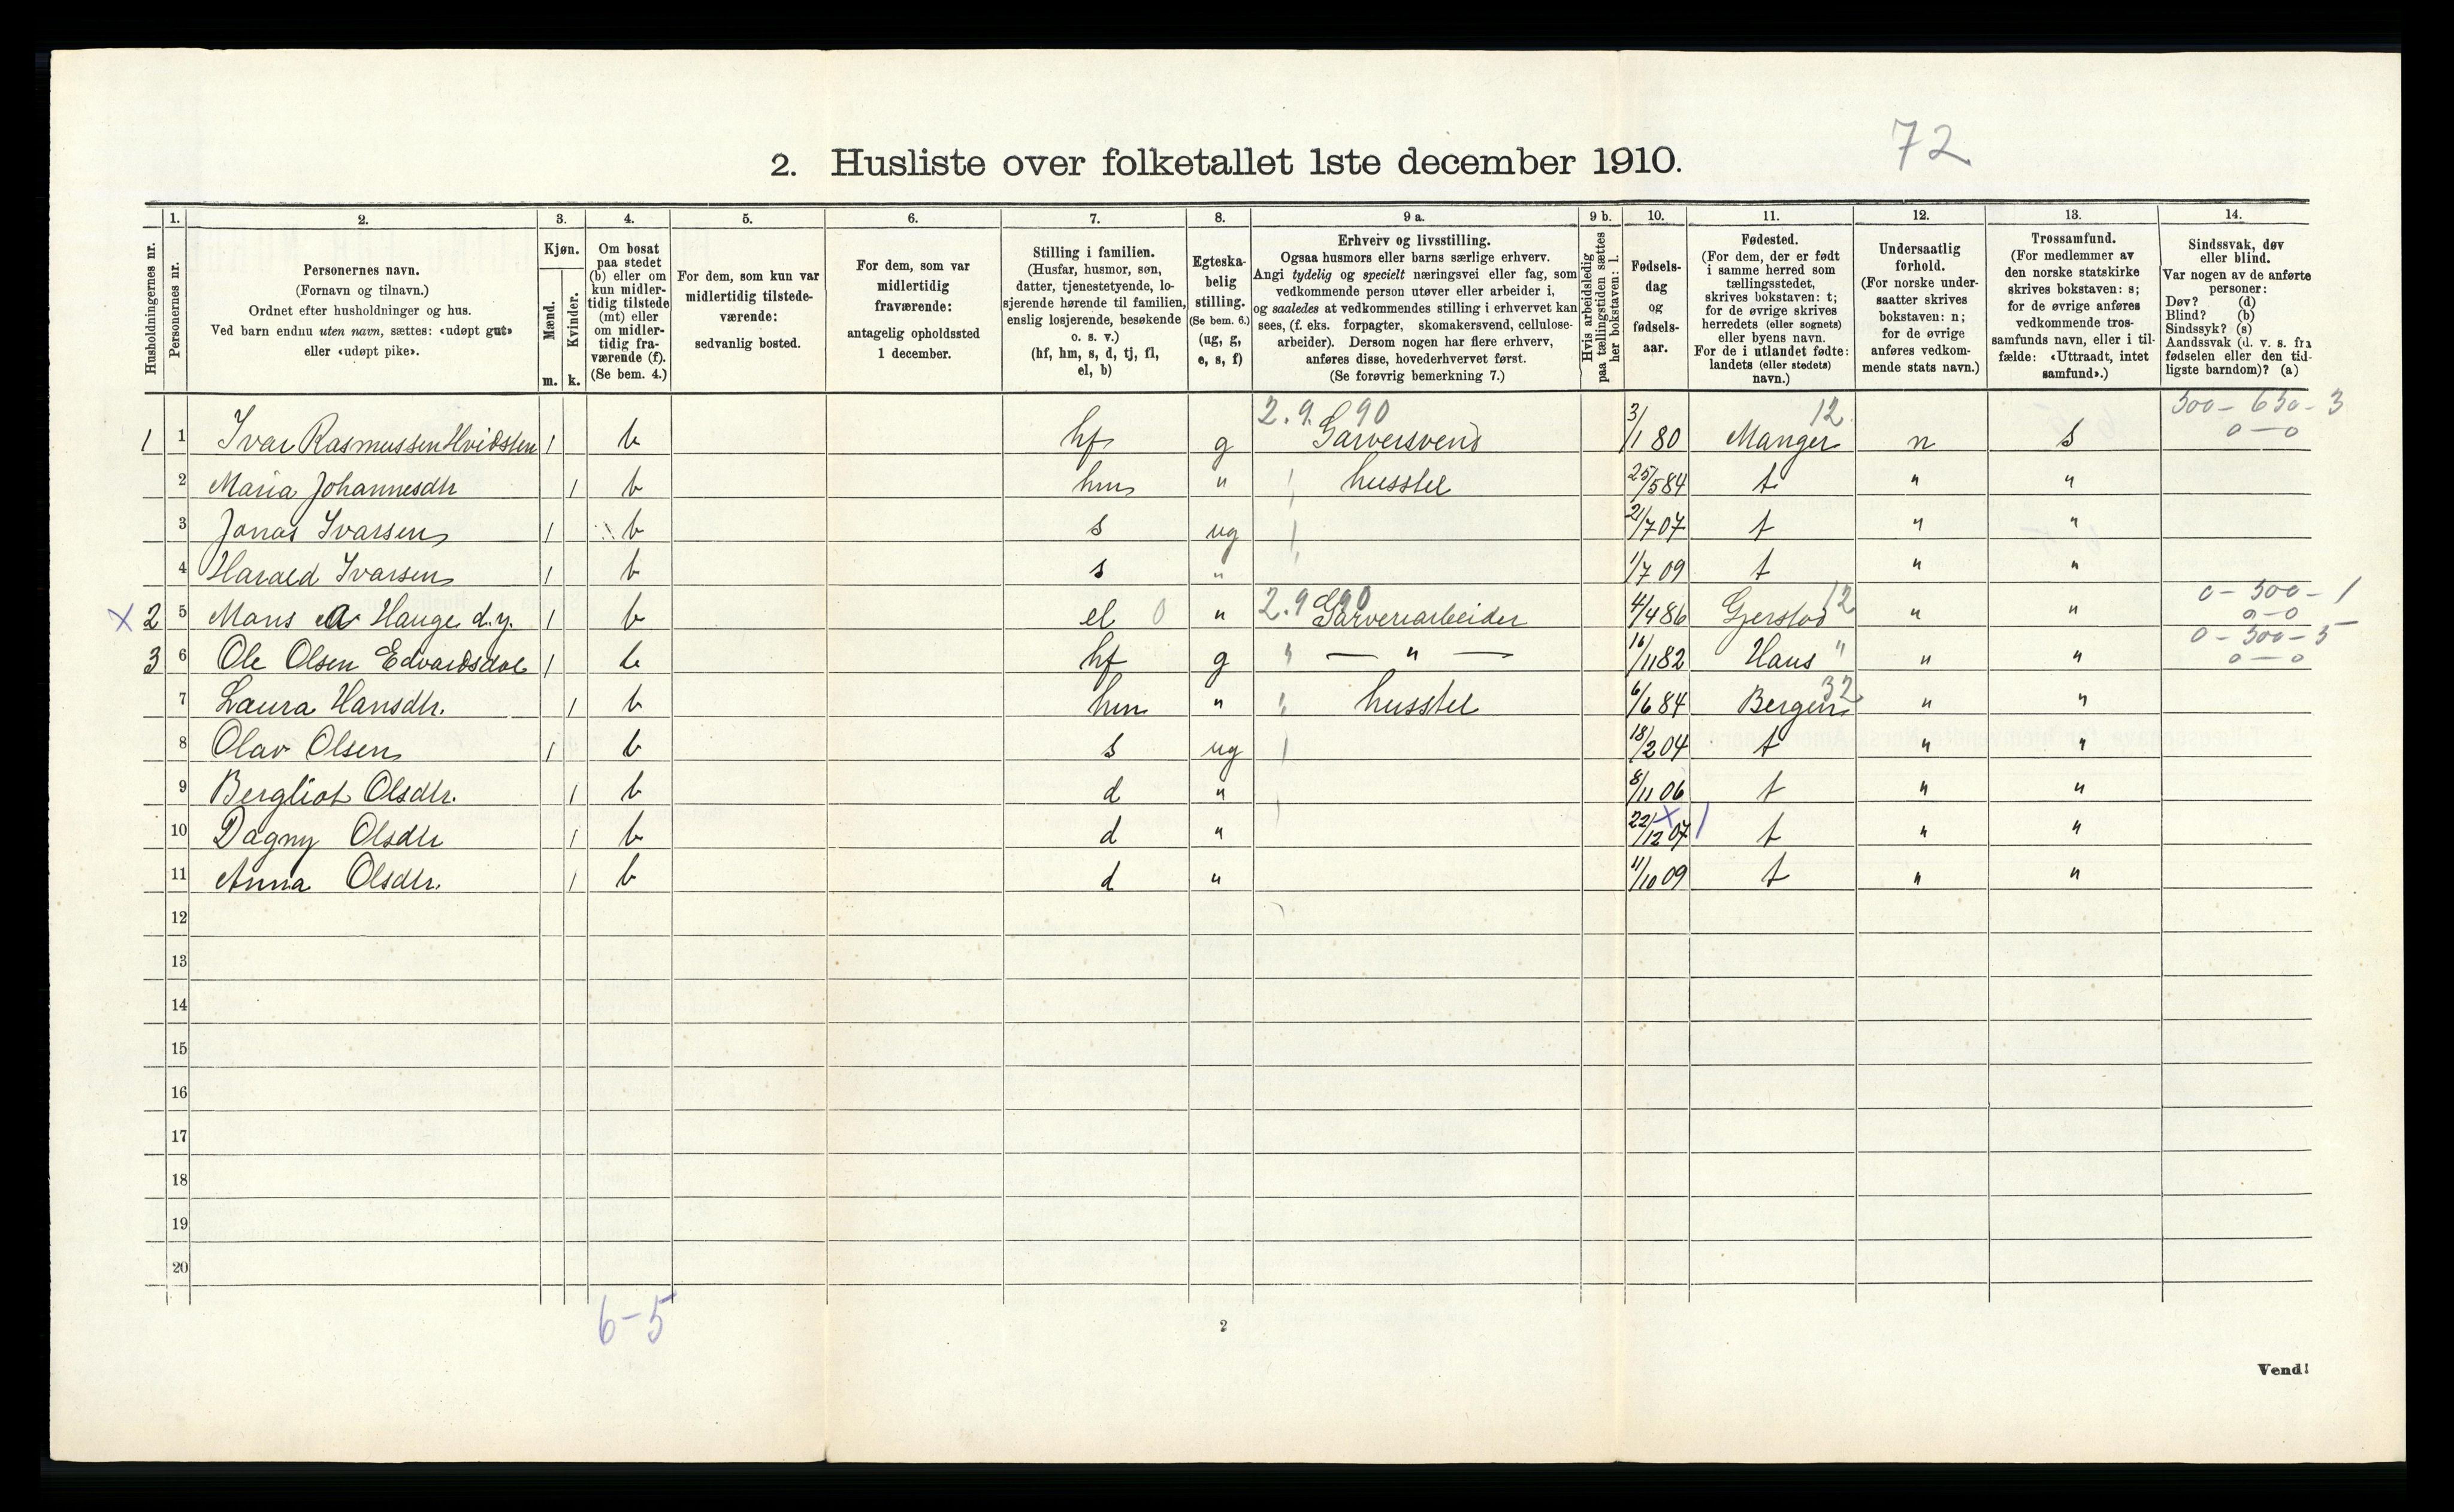 72
2. Husliste over folketallet 1ste december 1910.
1. 2. 3. 4. 5. 6. 7. 8. 9 a. 9 b. 10. 11. 12. 13. 14.
Husholdningernes nr.
Personernes nr.
Personernes navn.
(Fornavn og tilnavn.)
Ordnet efter husholdninger og hus.
Ved barn endnu uten navn, sættes: «udøpt gut»
eller «udøpt pike».
Kjøn.
Mænd.
Kvinder.
m. k.
Om bosat
paa stedet
(b) eller om
kun midler-
tidig tilstede
(mt) eller
om midler-
tidig fra-
værende (f).
(Se bem. 4.)
For dem, som kun var
midlertidig tilstede-
værende:
sedvanlig bosted.
For dem, som var
midlertidig
fraværende:
antagelig opholdssted
1 december.
Stilling i familien.
(Husfar, husmor, søn,
datter, tjenestetyende, lo-
sjerende hørende til familien,
enslig losjerende, besøkende
o. s. v.)
(hf, hm, s, d, tj, fl,
el, b)
Egteska-
belig
stilling.
(Se bem. 6.)
(ug, g,
e, s, f)
Erhverv og livsstilling.
Ogsaa husmors eller barns særlige erhverv.
Angi tydelig og specielt næringsvei eller fag, som
vedkommende person utøver eller arbeider i,
og saaledes at vedkommendes stilling i erhvervet kan
sees, (f. eks. forpagter, skomakersvend, cellulose-
arbeider). Dersom nogen har flere erhverv,
anføres disse, hovederhvervet først.
(Se forøvrig bemerkning 7.)
Hvis arbeidsledig
paa tællingstiden sættes
her bokstaven: l.
Fødsels-
dag
og
fødsels-
aar.
Fødested.
(For dem, der er født
i samme herred som
tællingsstedet,
skrives bokstaven: t;
for de øvrige skrives
herredets (eller sognets)
eller byens navn.
For de i utlandet fødte:
landets (eller stedets)
navn.)
Undersaatlig
forhold.
(For norske under-
saatter skrives
bokstaven: n;
for de øvrige
anføres vedkom-
mende stats navn.)
Trossamfund.
(For medlemmer av
den norske statskirke
skrives bokstaven: s;
for de øvrige anføres
vedkommende tros-
samfunds navn, eller i til-
fælde: «Uttraadt, intet
samfund».)
Sindssvak, døv
eller blind.
Var nogen av de anførte
personer:
Døv? (d)
Blind? (b)
Sindssyk? (s)
Aandssvak (d. v. s. fra
fødselen eller den tid-
ligste barndom)? (a)
2.9.90 12 500-650-3
1 1 Ivar Rasmussen Hvidsten 1 b hf g Garversvend 3/1 80 Manger n s 0-0
2 Maria Johannesdtr 1 b hm " husstel 25/5 84 t " "
3 Jonas Ivarsen 1 b s ug 2/7 07 t " "
4 Harald Ivarsen 1 b s " 1/7 09 t " "
2.9.90 12 0-500-1
X 2 5 Mons A Hauge d.y. 1 b el 0 " Garveriarbeider 4/4 86 Gjerstad " " 0-0
0-500-5
3 6 Ole Olsen Edvardsdal 1 b hf g — " — 16/11 82 Haus " " " 0-0
7 Laura Hansdtr. 1 b hm " husstel 6/6 84 Bergen 32 " "
8 Olav Olsen 1 b s ug 18/2 04 t " "
9 Bergliot Olsdtr. 1 b d " 8/11 06 t " "
10 Dagny Olsdtr 1 b d " 22/12 07 X / t " "
11 Anna Olsdtr. 1 b d " 11/10 09 t " "
12
13
14
15
16
17
18
19
20
6-5
2
Vend!